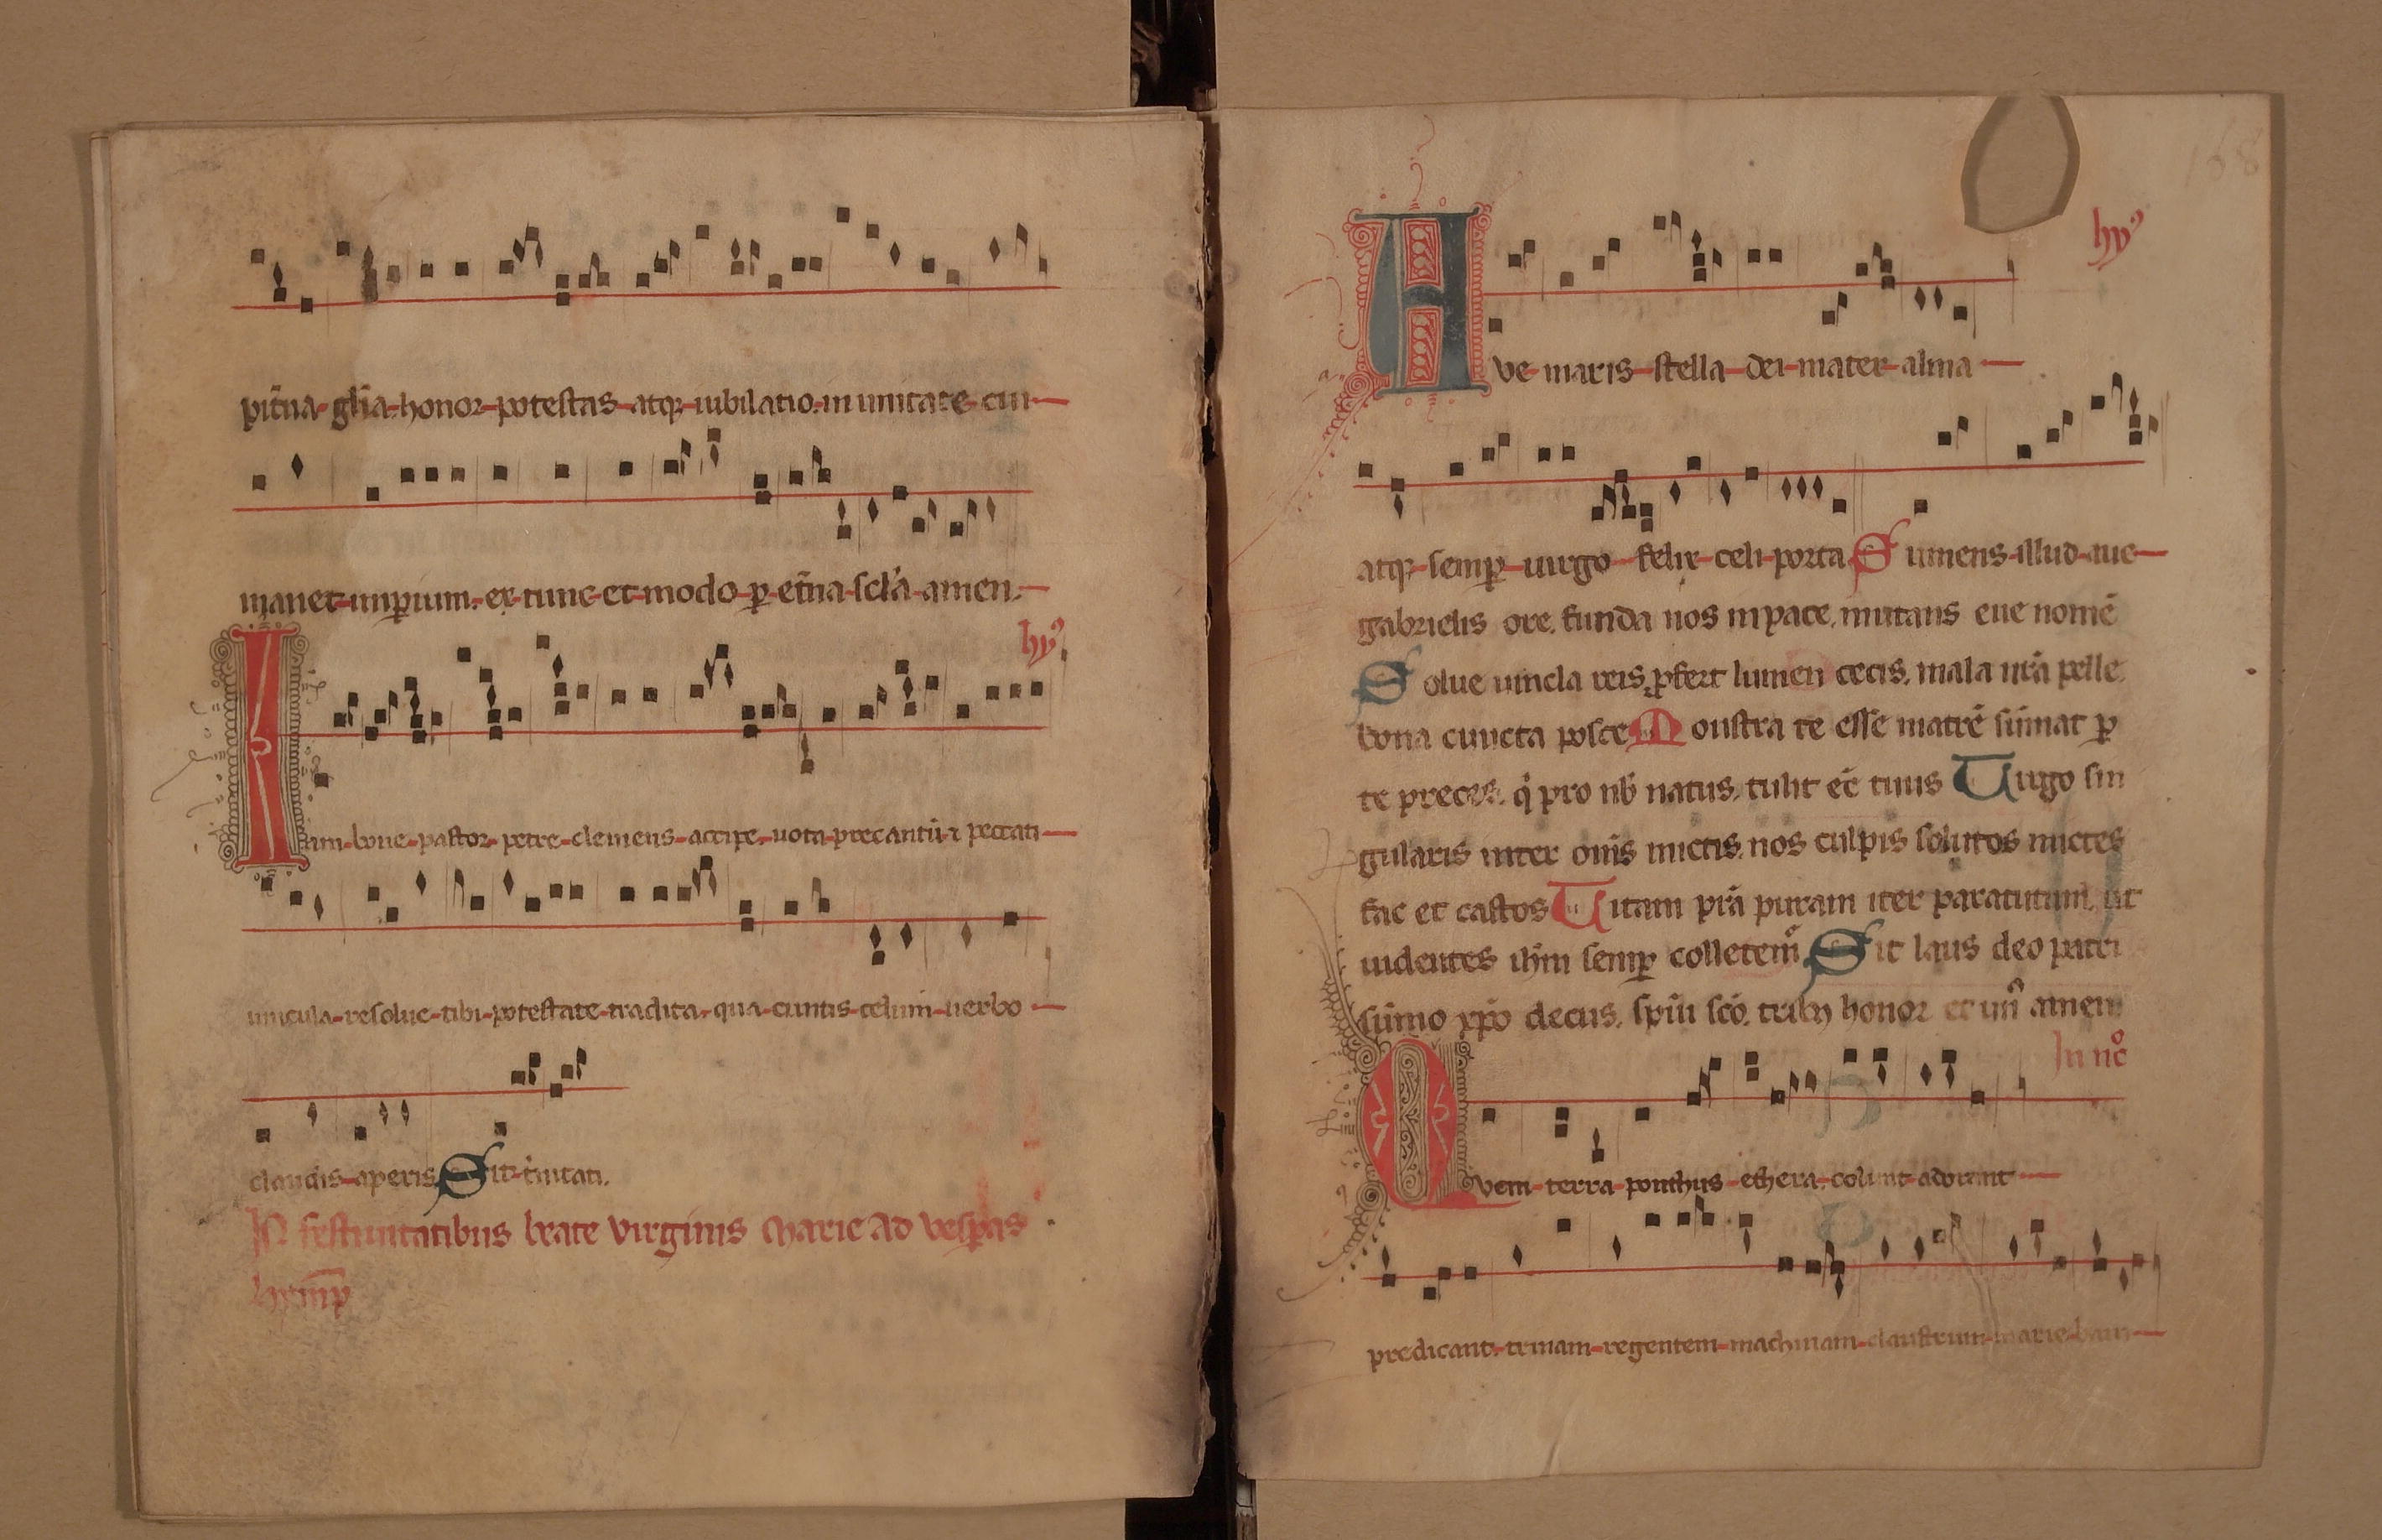 pit̄na glīa honor potestas atqꝫ iubilatio in unitate cui
manet imꝑium ex tunc et modo ꝑ et̄na scl̄a amen
hyꝰ
Iam bone pastor petre clemens accipe uota precantū ⁊ peccati
uincula resolue tibi potestate tradita qua cuntis celum uerbo
claudis aperis Sit t̄nitati.
IN festiuitatibus beate virginis Marie Ad vesꝑas
hymp̄
168
hyꝰ
Ave maris stella dei mater alma
atqꝫ semꝑ uirgo felix celi porta Sumens illud aue
gabrielis ore. funda nos in pace. mutans eue nomē
Solue uincla reis, ꝓfert lumen cecis. mala nr̄a pelle
bona cuncta posce Monstra te esse matrē sūmat ꝑ
te preces. q̇ pro nb̄ natus. tulit eē tuus Uirgo sin
gularis inter om̄s mictis. nos culpis solutos mictes
fac et castos Uitam pr̄a puram iter para tutum. ut
uidentes ihm̄ semꝑ colletemꝰ Sit laus deo patri
sūmo xp̄o decus. sp̄ui sc̄o. tribꝫ honor et unꝰ amen
In noc̄
Quem terra ponthus ethera colunt adorant
predicant. trinam regentem machinam claustrum marie baiu